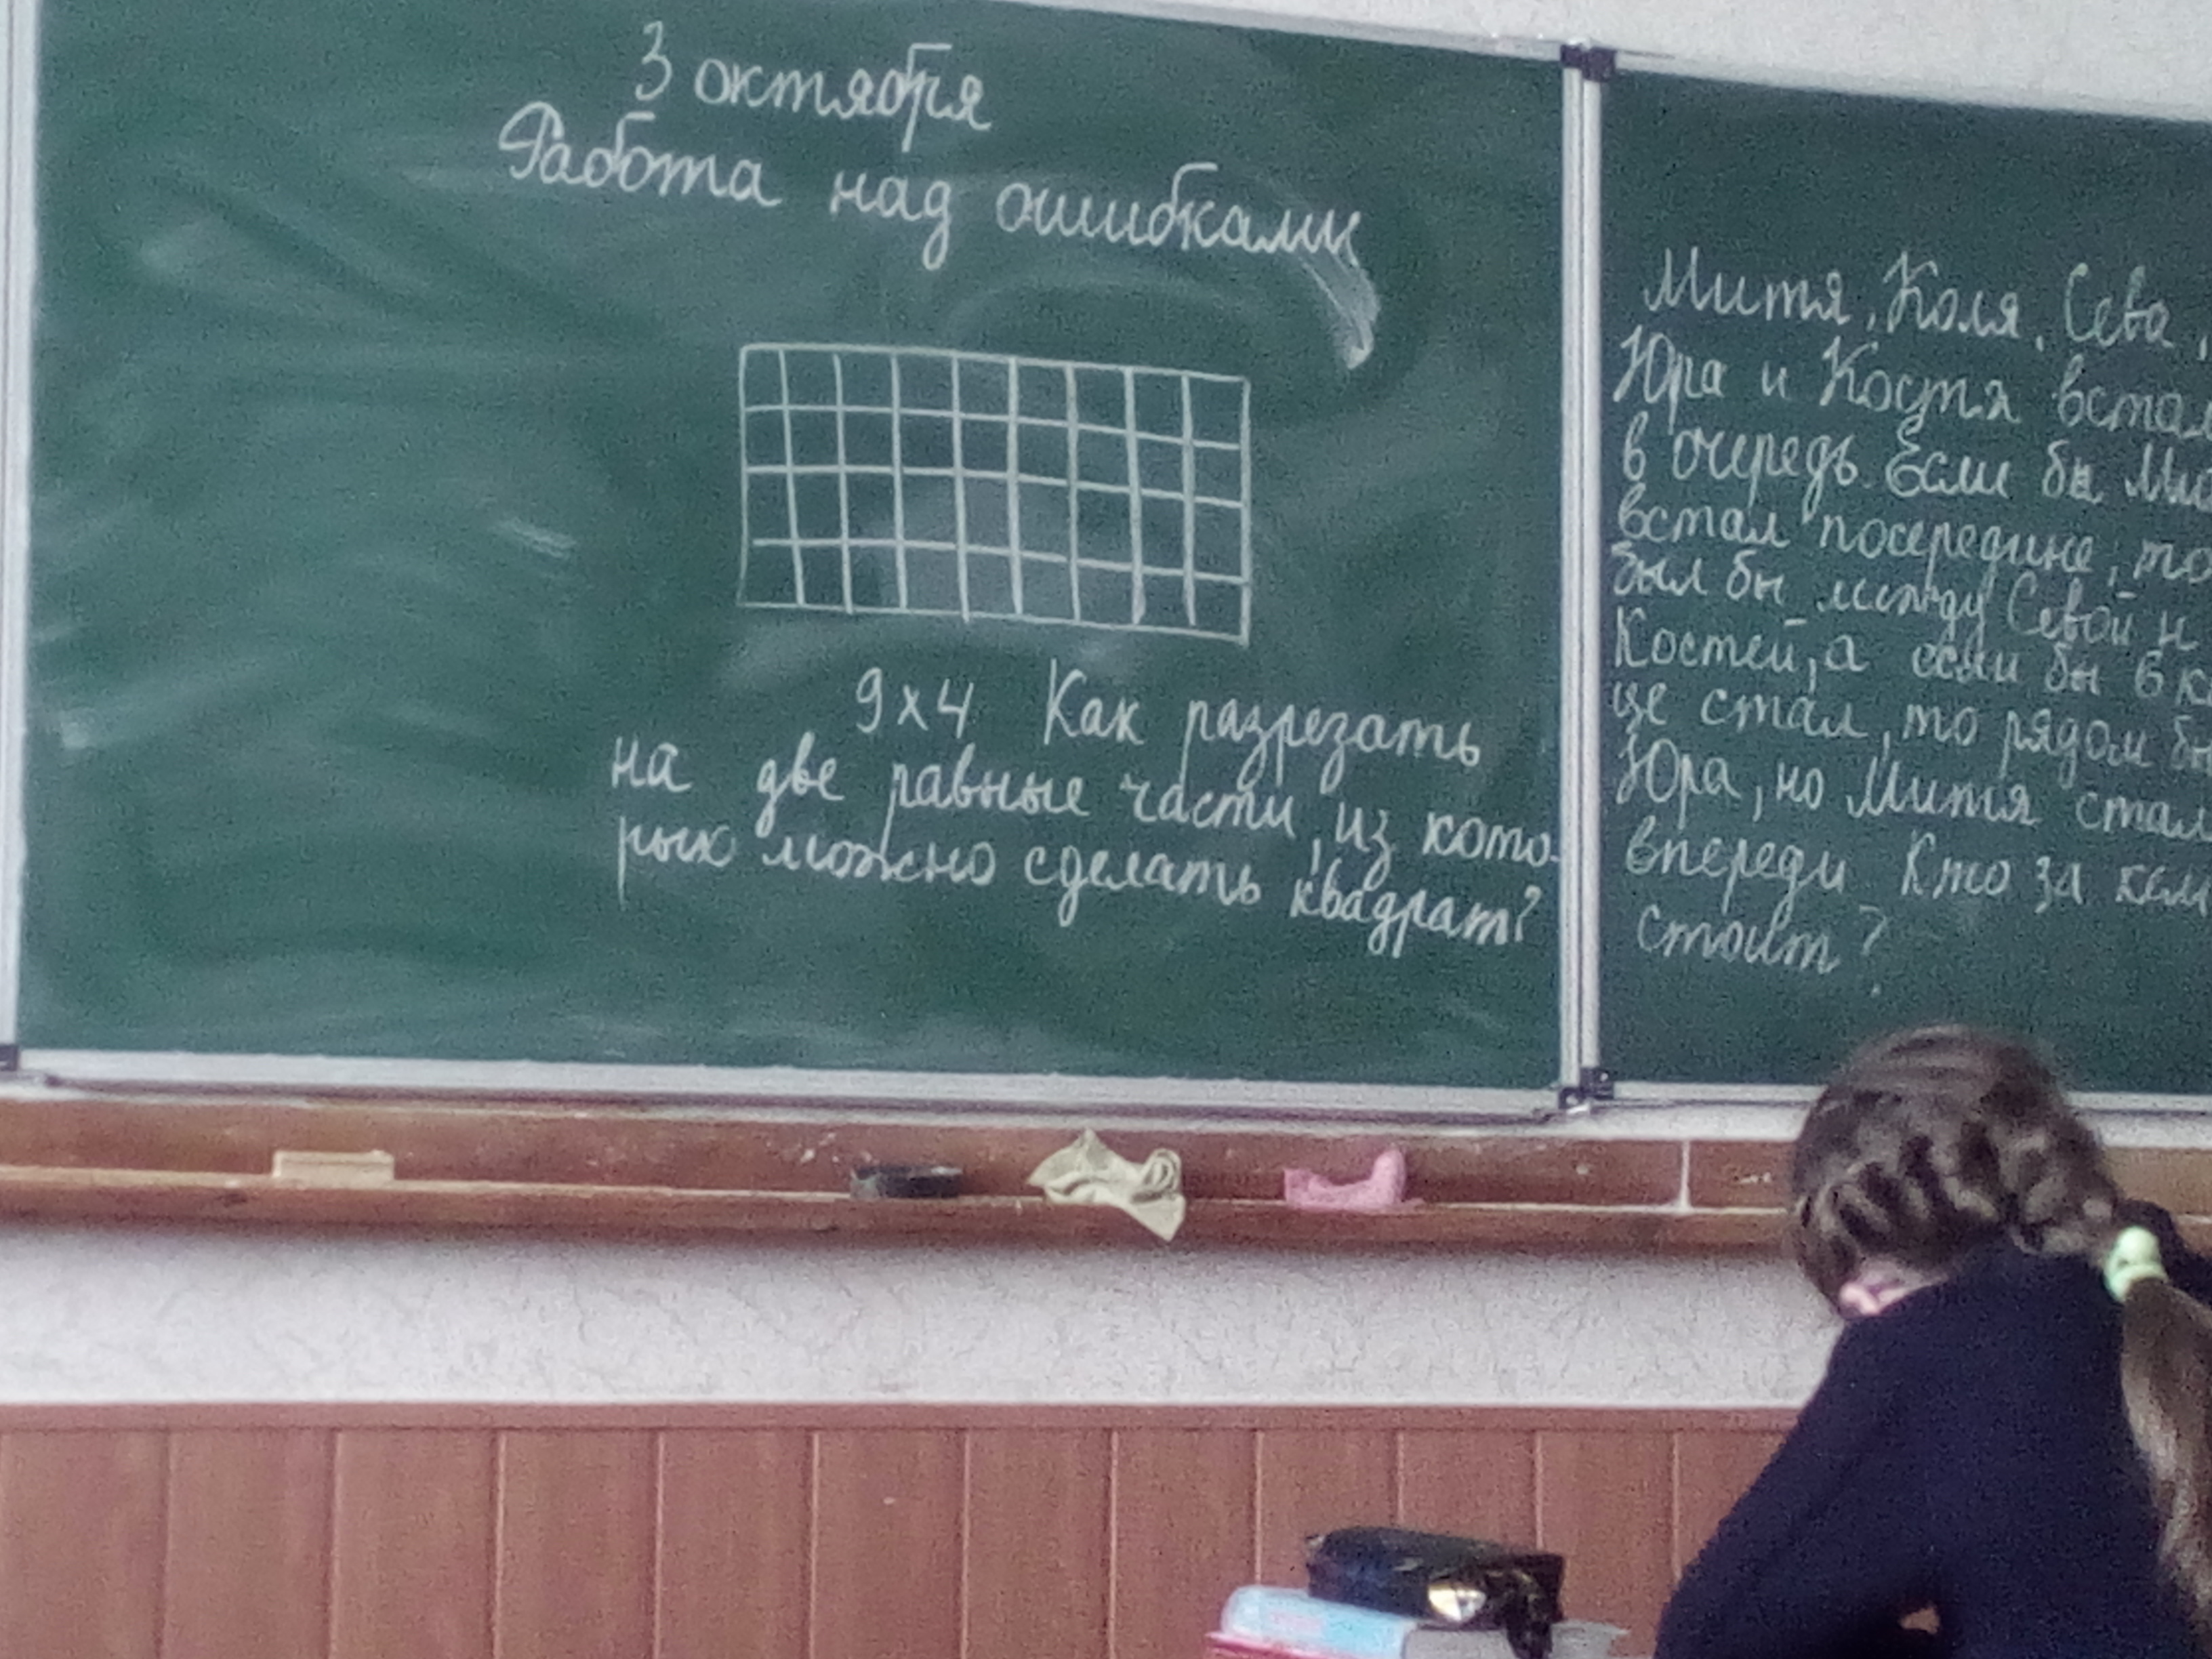 3 октября
Работа над ошибками
9х4 Как разрезать
на две равные части, из кото-
рых можно сделать квадрат?
Митя, Коля, Сева,
Юра и Костя встал
в очередь. Если бы Ми
встал посередине, то
был бы между Севой и
Костей, а если бы в к
це стал, то рядом бы
Юра, но Митя стал
впереди. Кто за кем
стоит?